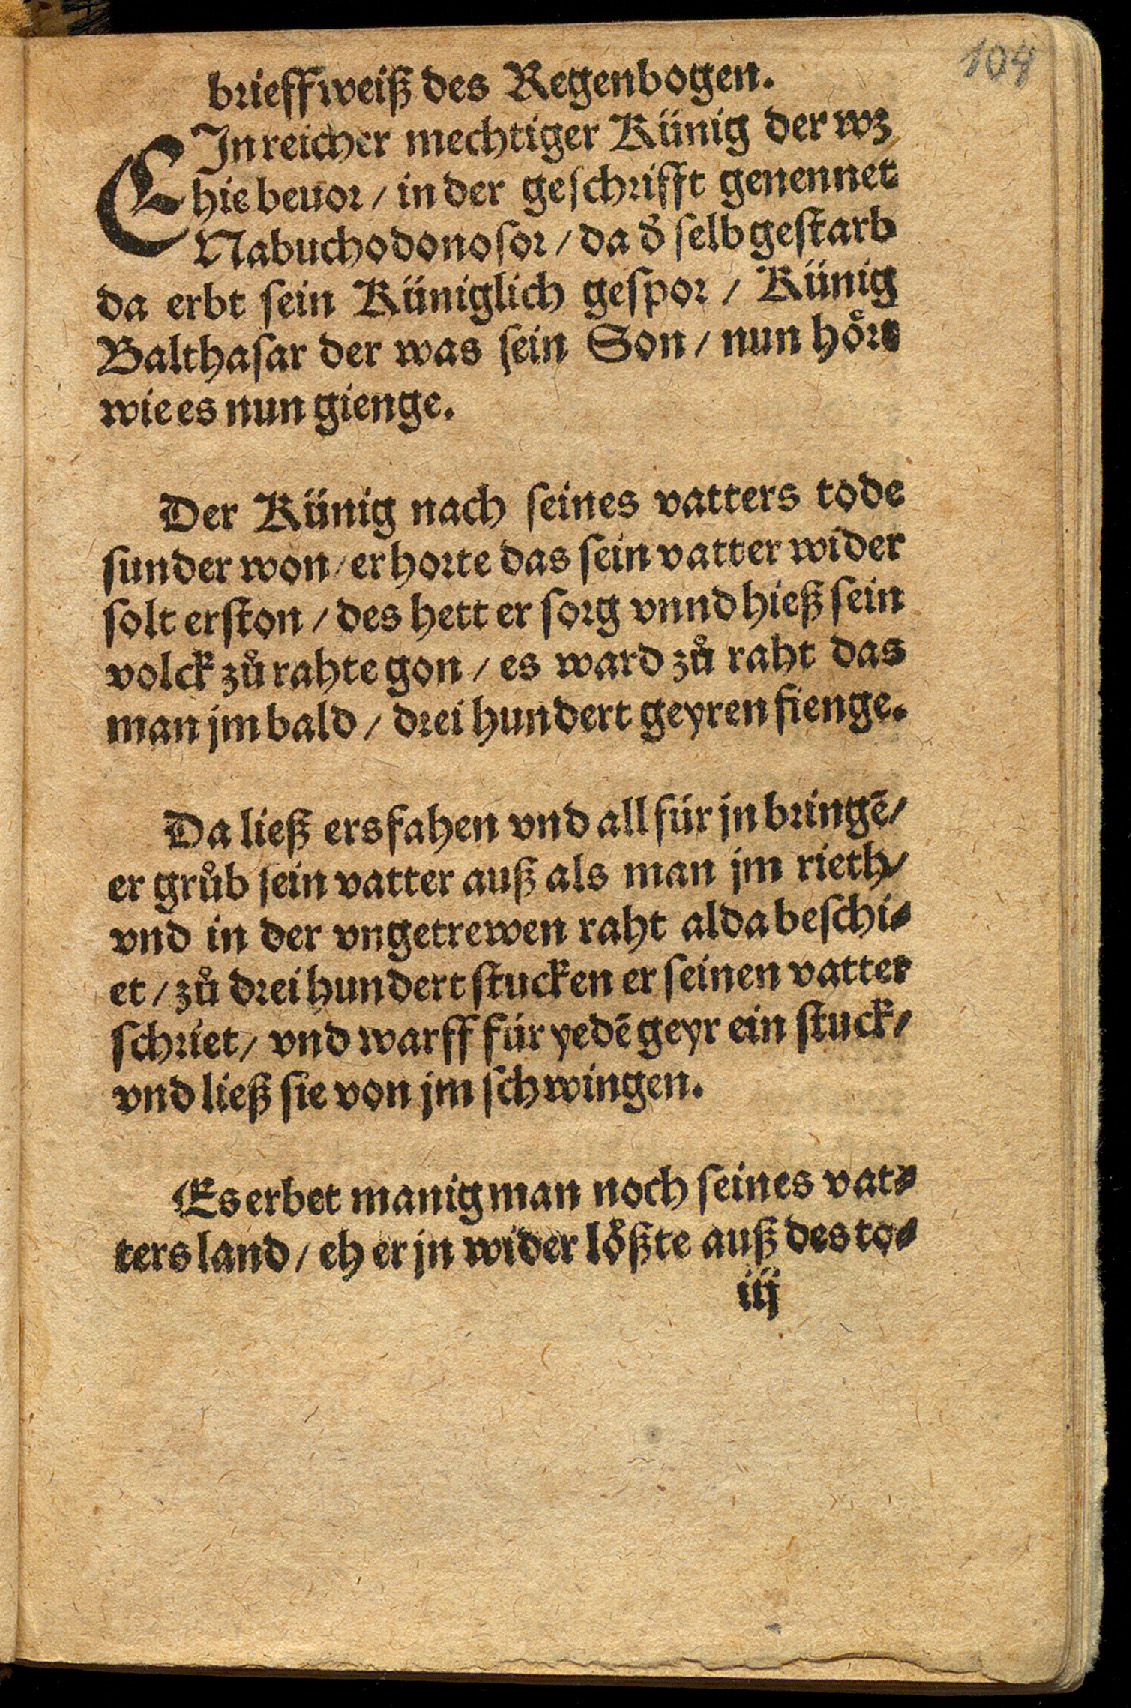 104
brieffweiß des Regenbogen.
EIn reicher mechtiger Künig der wz
hie beuor / in der geschrifft genennet
Nabuchodonosor / da d̄ selb gestarb
da erbt sein Küniglich gespor / Künig
Balthasar der was sein Son / nun hört
wie es nun gienge.
Der Künig nach seines vatters tode
sunder won / er horte das sein vatter wider
solt erston / des hett er sorg vnnd hieß sein
volck zů rahte gon / es ward zů raht das
man jm bald / drei hundert geyren fienge.
Da ließ ers fahen vnd all für jn bringē /
er grůb sein vatter auß als man jm rieth /
vnd in der vngetrewen raht alda beschi-
et / zů drei hundert stucken er seinen vatter
schriet / vnd warff für yedē geyr ein stuck /
vnd ließ sie von jm schwingen.
Es erbet manig man noch seines vat-
ters land / eh er jn wider lößte auß des to-
iij